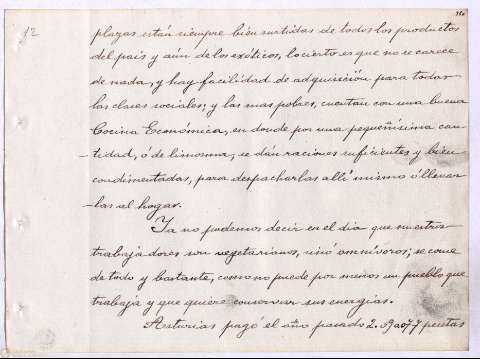 12
plazas están siempre bien surtidas de todos los productos
del país y aún de los exóticos, lo cierto es que no se carece
de nada, y hay facilidad de adquisición para todas
las clases sociales; y las mas pobres, cuentan con una buena
Cocina Económica, en donde por una pequeñísima can-
-tidad, ó de limosna, se dán raciones suficientes y bien
condimentadas, para despacharlas allí mismo ó llevar-
-las al hogar.
Ya no podemos decir en el dia que nuestros
trabajadores son vegetarianos, sinó omnívoros; se come
de todo y bastante, como no puede por menos un pueblo que
trabaja y que quiere conservar sus energías.
Asturias pagó el año pasado pesetas